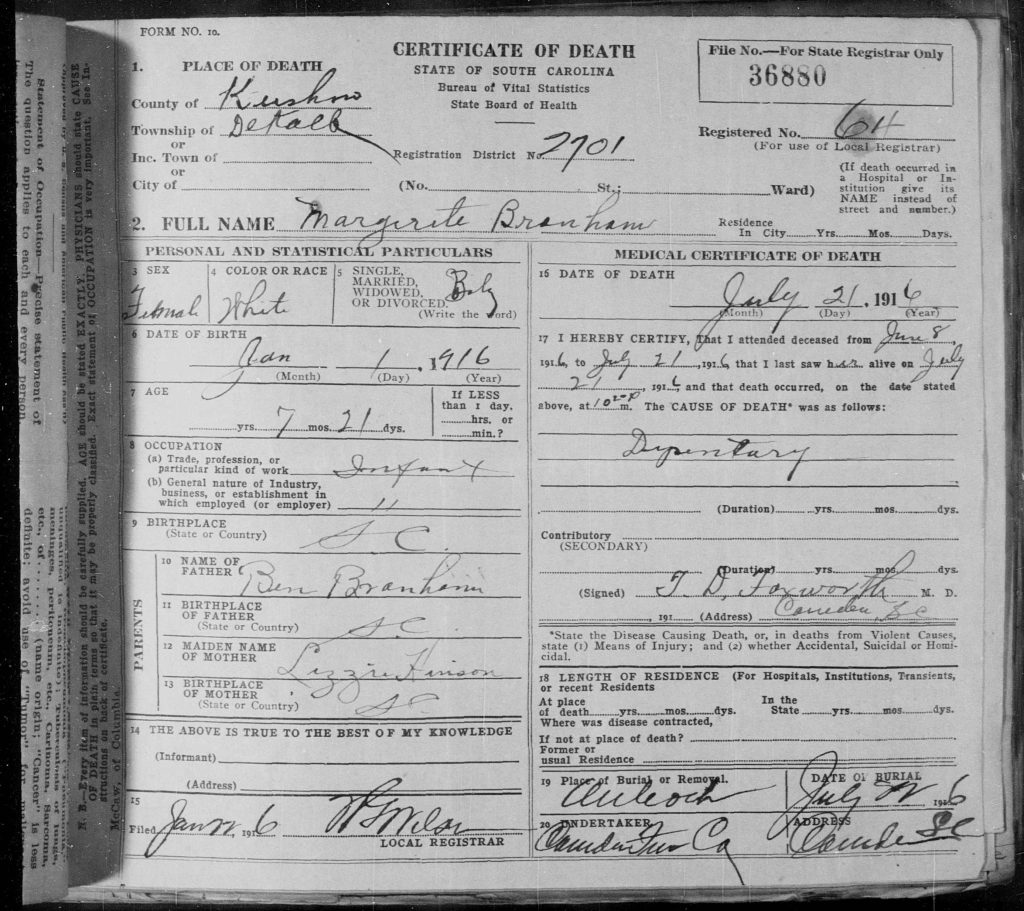 FORM NO. 10.
CERTIFICATE OF DEATH
STATE OF SOUTH CAROLINA
Bureau of Vital Statistics
State Board of Health
File No.—For State Registrar Only
36880
1. PLACE OF DEATH
County of Kershaw
Township of DeKalb
or
Inc. Town of
or
City of
Registration District No. 2701
Registered No. 64
(For use of Local Registrar)
(No. St.; Ward)
(If death occurred in
a Hospital or In-
stitution give its
NAME instead of
street and number.)
2. FULL NAME Margerite Branham
Residence
In City Yrs. Mos. Days.
PERSONAL AND STATISTICAL PARTICULARS
3 SEX
Female
4 COLOR OR RACE
White
5 SINGLE,
MARRIED,
WIDOWED,
OR DIVORCED.
(Write the word)
6 DATE OF BIRTH
Jan 1, 1916
(Month) (Day) (Year)
7 AGE
yrs. 7 mos. 21 dys.
If LESS
than 1 day.
hrs. or
min.?
8 OCCUPATION
(a) Trade, profession, or
particular kind of work Infant
(b) General nature of Industry,
business, or establishment in
which employed (or employer) "
9 BIRTHPLACE
(State or Country) S.C.
PARENTS
10 NAME OF
FATHER Ben Branham
11 BIRTHPLACE
OF FATHER
(State or Country) S.C.
12 MAIDEN NAME
OF MOTHER Lizzie Hinson
13 BIRTHPLACE
OF MOTHER
(State or Country) S.C.
14 THE ABOVE IS TRUE TO THE BEST OF MY KNOWLEDGE
(Informant)
(Address)
15
Filed 1916
LOCAL REGISTRAR
MEDICAL CERTIFICATE OF DEATH
16 DATE OF DEATH
July 21, 1916
(Month) (Day) (Year)
17 I HEREBY CERTIFY, That I attended deceased from June 8,
1916, to July 21, 1916, that I last saw her alive on July
21, 1916, and that death occurred, on the date stated
above, at 10 m. The CAUSE OF DEATH* was as follows:
Dysentary
(Duration) yrs. mos. dys.
Contributory
(SECONDARY)
(Duration) yrs. mos. dys.
(Signed) T. D. Foxworth M. D.
, 191 (Address) Camden, S.C.
*State the Disease Causing Death, or, in deaths from Violent Causes,
state (1) Means of Injury; and (2) whether Accidental, Suicidal or Homi-
cidal.
18 LENGTH OF RESIDENCE (For Hospitals, Institutions, Transients,
or recent Residents
At place In the
of death yrs. mos. dys. State yrs. mos. dys.
Where was disease contracted,
If not at place of death?
Former or
usual Residence
19 Place of Burial or Removal. DATE OF BURIAL
Antioch July 22 1916
20 UNDERTAKER ADDRESS
Camden Fur Co Camden SC
N. B.—Every item of information should be carefully supplied. AGE should be stated EXACTLY. PHYSICIANS should state CAUSE
OF DEATH in plain terms so that it may be properly classified. Exact statement of OCCUPATION is very important. See In-
structions on back of certificate.
McCaw, of Columbia.
Statement of Occupation—Precise statement of
The question applies to each and every person
meninges, peritoneum, etc., Carinoma, Sarcoma,
etc., of...... (name origin; "Cancer" is less
definite; avoid use of "Tumor" for